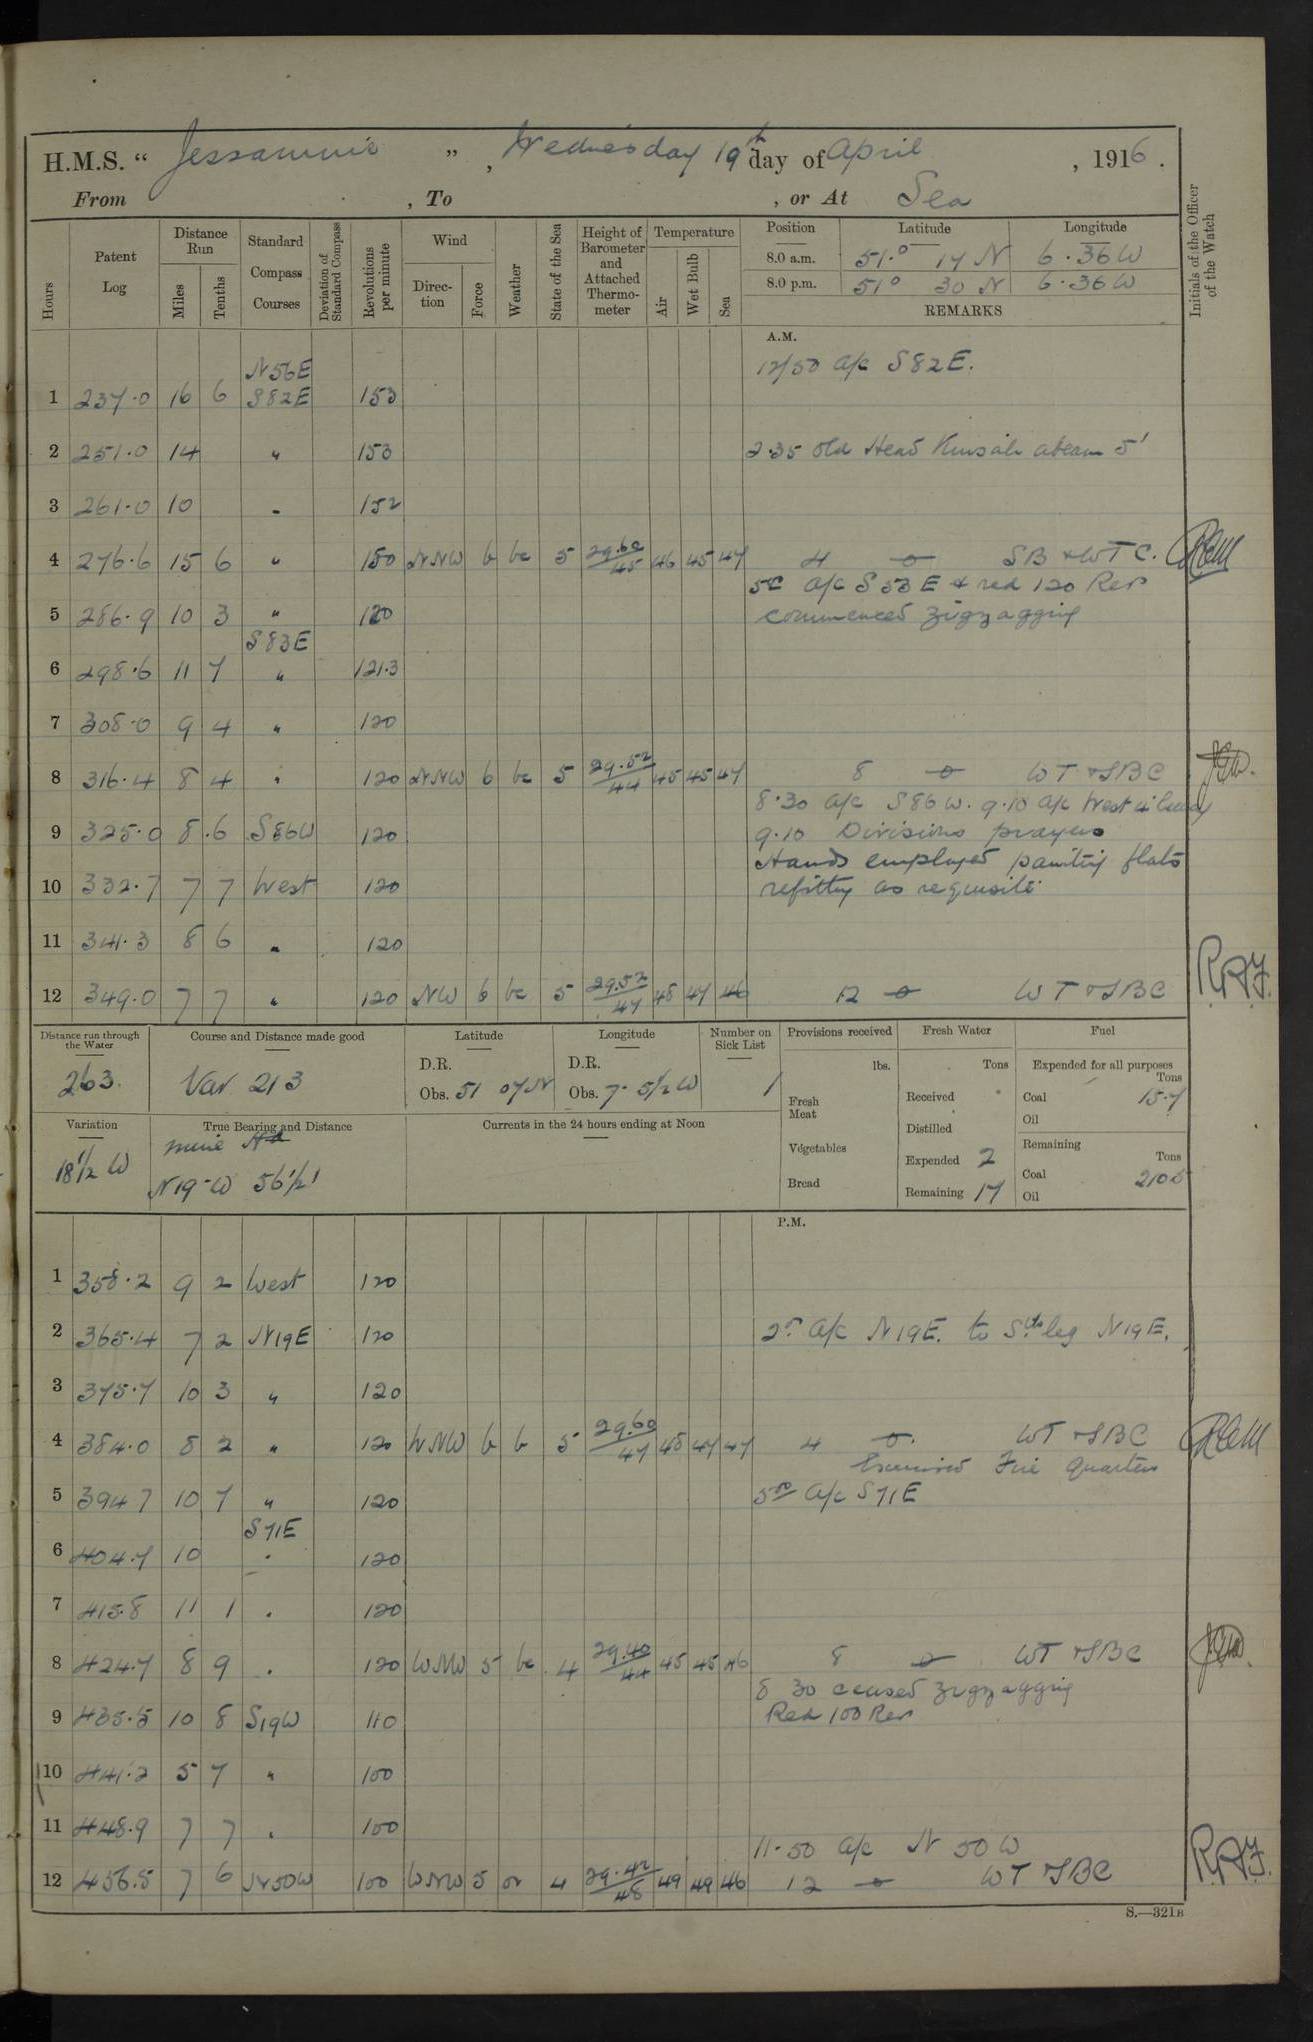 H.M.S. “ Jessamine ” , Wednesday 19th day of April , 1916 .
From , To , or At Sea
Hours
Patent Log
Distance Run
Miles
Tenths
Standard Compass Courses
Deviation of Standard Compass
Revolutions per minute
Wind
Direction
Force
Weather
State of the Sea
Height of Barometer and Attached Thermometer
Temperature
Air
Wet Bulb
Sea
Position Latitude Longitude
8.0 a.m. 51.° 14 N 6.36 W
8.0 p.m. 51° 30 N 6.36 W
REMARKS
Initials of the Officer of the Watch
A.M.
N56E 12/50 a/c S82E.
1 237.0 16 6 S82E 153
2 251.0 14 " 153 2.35 Old Head Kinsale abeam 5'
3 261.0 10 " 152
4 276.6 15 6 " 150 NNW 6 bc 5 29.60/45 46 45 47 4 o SB & WTC.
5.0 a/c S 83 E & red 120 Rev
5 286.9 10 3 " 120 commenced zigzagging
S83E
6 298.6 11 7 " 121.3
7 308.0 9 4 " 120
8 316.4 8 4 " 120 NNW 6 bc 5 29.52/44 45 45 47 8 o WT & SBC
8.30 a/c S86W. 9.10 a/c West
9 325.0 8 .6 S86W 120 9.10 Divisions prayers
Hands employed painting flats
10 332.7 7 7 West 120 refitting as requisite
11 341.3 8 6 " 120
12 349.0 7 7 " 120 NW 6 bc 5 29.52/47 48 47 46 12 o WT & SBC R.A.F.
Distance run through the Water
263.
Course and Distance made good
Var 213
Latitude
D.R.
Obs. 51 07 N
Longitude
D.R.
Obs. 7. 5 1/2 W
Number on Sick List
1
Provisions received
lbs.
Fresh Meat
Vegetables
Bread
Fresh Water
Tons
Received
Distilled
Expended 2
Remaining 17
Fuel
Expended for all purposes
Tons
Coal 15.7
Oil
Remaining
Tons
Coal 210.5
Oil
Variation
18 1/2 W
True Bearing and Distance
Mine Hd
N19W 56 1/2'
Currents in the 24 hours ending at Noon
P.M.
1 358.2 9 2 West 120
2 365.4 7 2 N19E 120 2.0 a/c N19E. to leg N19E.
3 375.7 10 3 " 120
4 384.0 8 2 " 120 WNW 6 b 5 29.60/47 48 47 47 4 o. WT & SBC
Exercised Fire Quarters
5 394 7 10 7 " 120 5.0 a/c S71E
S71E
6 404.7 10 " 120
7 415.8 11 1 " 120
8 424.7 8 9 " 120 WNW 5 bc 4 29.40/44 45 45 46 8 o WT & SBC
8 30 ceased zigzagging
9 435.5 10 8 S19W 110 Red 100 Rev
10 441.2 5 7 " 100
11 448.9 7 7 " 100
11.50 a/c N 50 W
12 456.5 7 6 N50W 100 WNW 5 or 4 29.42/48 49 49 46 12 o WT & SBC R.A.F.
S.—321B